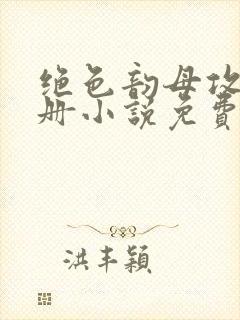 绝色韵母攻
册小说免费
洪丰颖